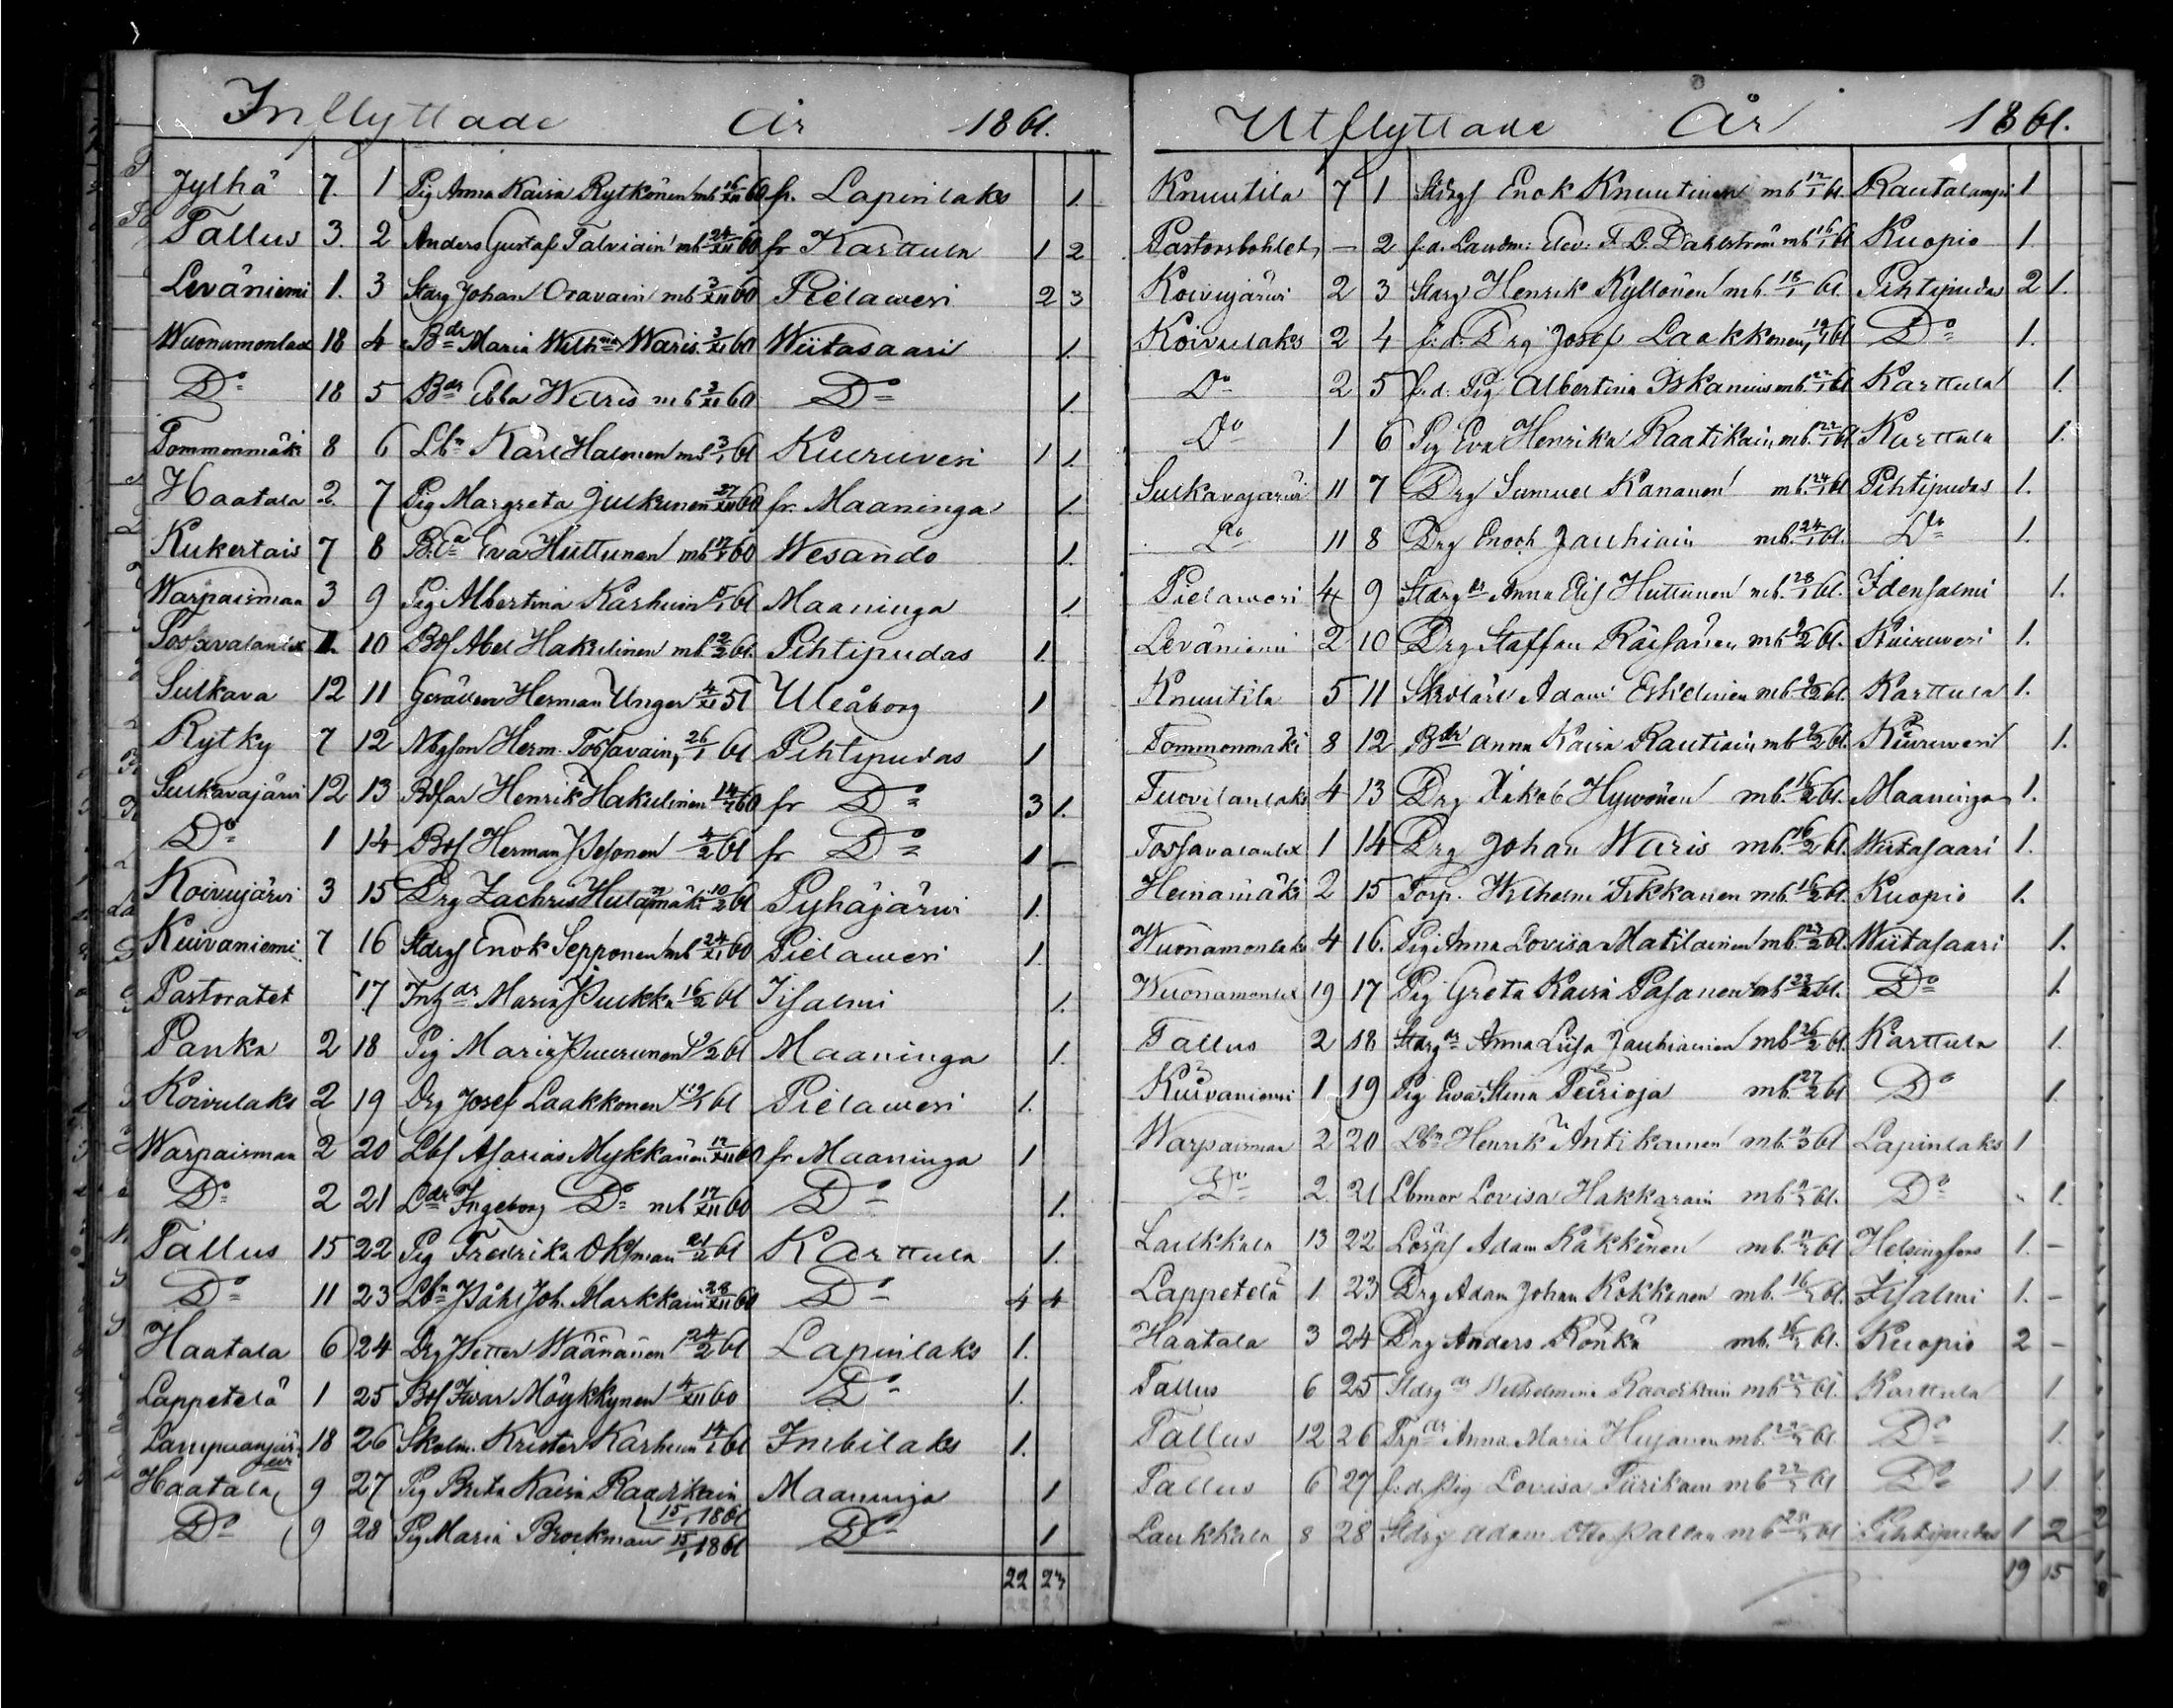 Inflyttade År 1861.
Jylhä 7. 1 Pig Anna Kaisa Rytkönen mb 16/XII 60 fr. Lapinlaks 1.
Tallus 3. 2 Anders Gustaf Talviain mb 24/XII 60 fr Karttula 1 2
Leväniemi 1. 3 Starg Johan Oravain mb 3/XII 60 Pielawesi 2 3
Wuonamonlax 18 4 Bdr Maria Wilhna Waris 3/XI 60 Wiitasaari 1.
Do 18 5 Bdr Ebba Waris mb 3/XI 60 Do 1.
Tommonmäki 8 6 Lbn Karl Halonen mb 3/1 61 Kiuruvesi 1 1.
Haatala 2. 7 Pig Margreta Julkunen 27/XII 60 fr. Maaninga 1.
Kukertais 7 8 Eva Huttunen mb 60 Wesando 1.
Warpaisman 3 9 Pig Albertina Karhuin 61 Maaninga 1.
Tossavalanlx 10 Bdf Abel Hakulinen mb. 2/2 61. Pihtipudas 1.
Sulkava 12 11 Herman Unger 4/XI 57 Uleåborg 1
Rytky 7 12 Herm. Tossavain, 26/1 61 Pihtipudas 1
Sulkavajärvi 12 13 Henrik Hakulinen 60 fr Do 3 1.
Do 1 14 Herman Pesonen 4/2 61 fr Do 1
Koivujärvi 3 15 Drg Zachris 10/2 61 Pyhäjärwi 1.
Kuivaniemi 7 16 Enok Sepponen mb 24/XI 60 Pielawesi 1.
Pastoratet 17 Maria Pulkka 16/2 61 Iisalmi 1.
Panka 2 18 Pig Maria Puurunen 61 Maaninga 1.
Koivulaks 2 19 Drg Josef Laakkonen 61 Pielawesi 1.
Warpaisman 2 20 Asarias Mykkänen 17/XII 60 fr Maaninga 1
Do 2 21 Ldr Ingeborg Do mb 17/XII 60 Do 1.
Tallus 15 22 Pig Fredrika Oksman 21/2 61 Karttula 1.
Do 11 23 Lbn Påhl Joh. Markkain 28/XII 60 Do 4 4
Haatala 6 24 Drg Petter Wäänänen 24/2 61 Lapinlaks 1.
Lappetelä 1 25 Iwar Möykkynen 4/XII 60 Do 1.
18 26 Skolm. Krister Karhuin 14/1 61 Imbilaks 1.
Haatala 9 27 Pig Brita Kaisa Raatikain 15/1 1861 Maaninga 1
Do 9 28 Pig Maria Brockman 15/1 1861 Do 1
22 23
Utflyttade År 1861.
Knuutila 7 1 Enok Knuutinen mb 12/1 61. Rautalampi 1
Pastorsbohlet, — 2 f.d. Landm: Elev: F. G. Dahlström mb 16/1 61 Kuopio 1
Koivujärwi 2 3 Starg Henrik Kyllönen mb. 18/1 61. Pihtipudas 2 1.
Koivulaks 2 4 f.d. Drg Josef Laakkonen, 19/1 61 Do 1.
Do 2 5 f.d. Pig Albertina Iskanius mb. 22/1 61 Karttula 1.
Do 1 6 Pig Eva Henrika Raatikain, mb. 22/1 61 Karttula 1.
Sulkavajärvi 11 7 Drg Samuel Kananen mb. 24/1 61 Pihtipudas 1.
Do 11 8 Drg Enoch Jauhiain mb. 24/1 61. Do 1.
Pielawesi 4 9 Anna Elis Huttunen mb. 28/1 61. Idensalmi 1.
Leväniemi 2 10 Drg Staffan Räisänen mb 61. Kiuruvesi 1.
Knuutila 5 11 Adam Eskelinen mb 61. Karttula 1.
Tommonmäki 8 12 Bdr Anna Kaisa Rautiain mb 61. Kiuruvesi 1.
Tuovilanlaks 4 13 Drg Jakob Hyvönen mb. 16/2 61. Maaninga 1.
Tossavalanlx 1 14 Drg Johan Waris mb. 16/2 61. Wiitasaari 1.
Heinämäki 2 15 Torp. Wilhelm Tikkanen mb. 16/2 61. Kuopio 1.
Wuonamonlaks 4 16. Pig Anna Lovisa Matilainen mb. 23/2 61. Wiitasaari 1.
Wuonamonlx 19 17 Pig Greta Kaisa Pasanen mb 23/2 61. Do 1.
Tallus 2 18 Anna Liisa Jauhiainen mb 26/2 61. Karttula 1.
Kuivaniemi 1 19 Pig Eva Stina mb. 27/2 61 Do 1.
Warpaisman 2 20 Lbn Henrik Antikainen mb. 61 Lapinlaks 1
Do 2 21 Lovisa Hakkarain mb 61. Do 1.
Laukkala 13 22 Adam Kakkinen mb. 61 Helsingfors 1. —
Lappetelä 1 23 Drg Adam Johan Kokkonen mb. 61. Iisalmi 1. —
Haatala 3 24 Drg Anders Rönkä mb. 61. Kuopio 2 —
Tallus 6 25 Wilhelmina mb 61. Karttula 1.
Tallus 12 26 Anna Maria mb. 61. Do 1.
Tallus 6 27 f.d. Pig Lovisa mb 61 Do 1 1.
Laukkala 8 28 Adam Otto mb 61 Pihtipudas 1 2
19 15